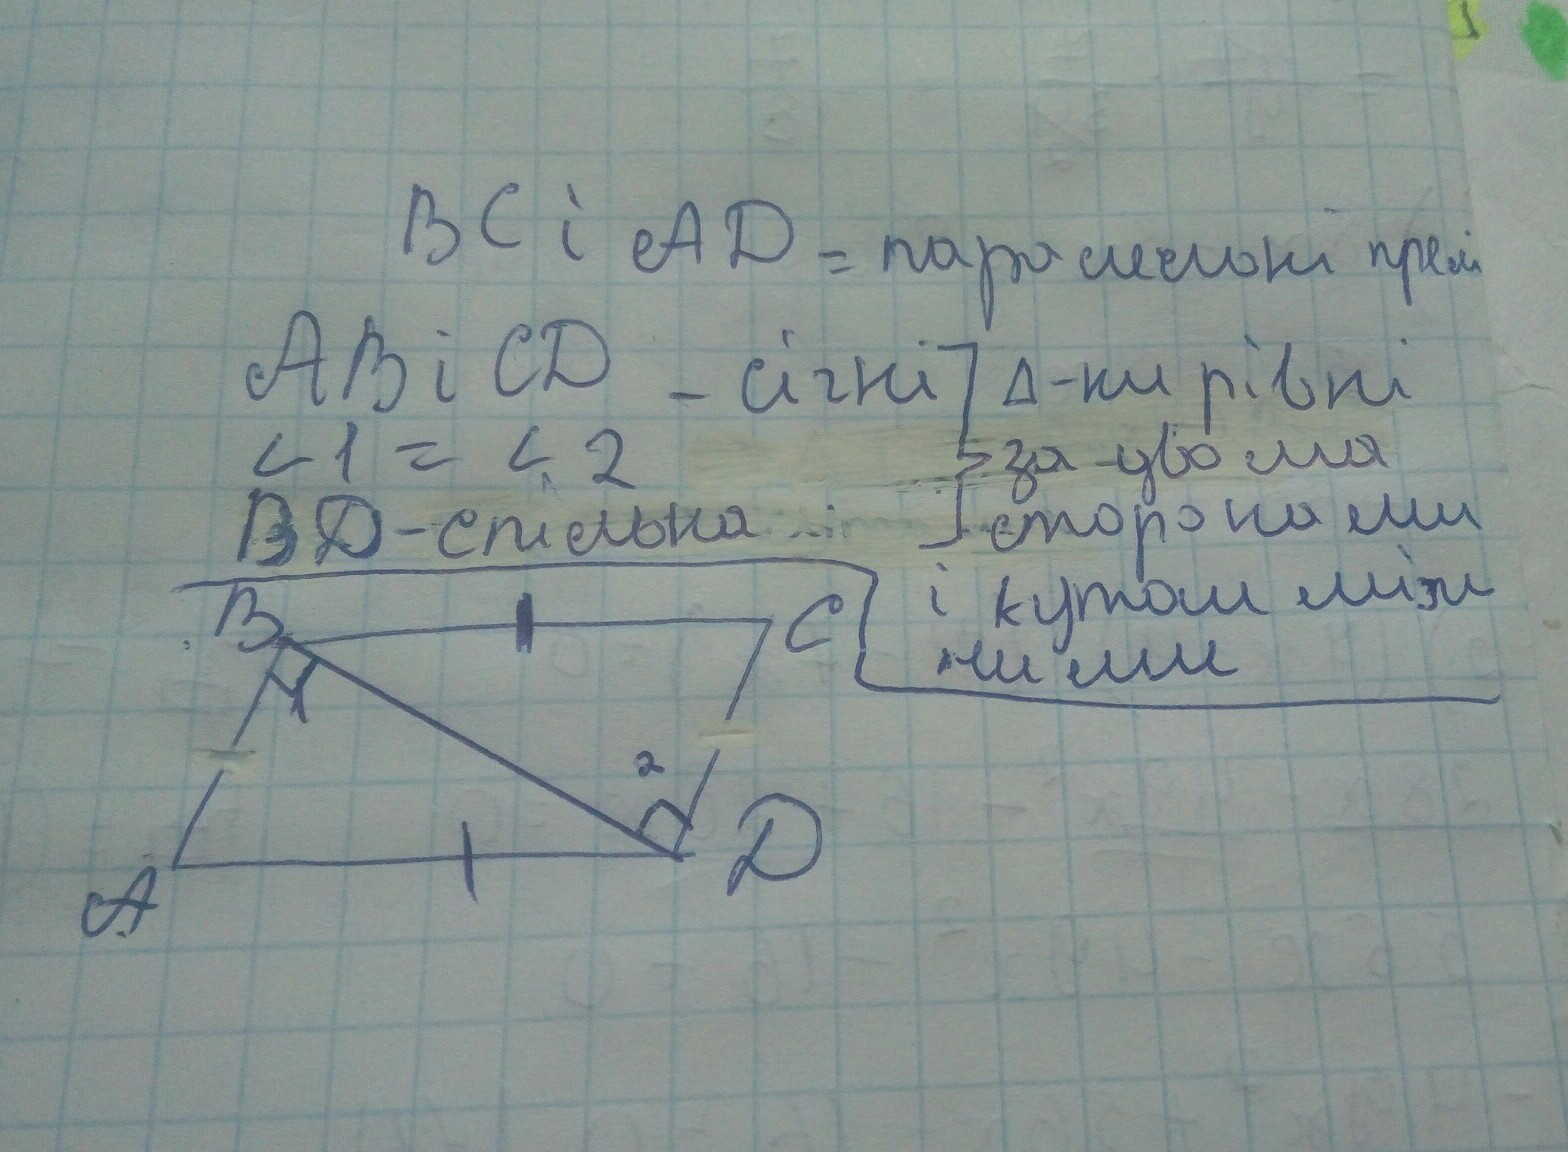 BC і AD = паралельні прямі
AB і CD - січні
Δ-ки рівні
<1 = <2
за двома
BD-спільна
сторонами
і кутом між
ними
B
C
2
D
A